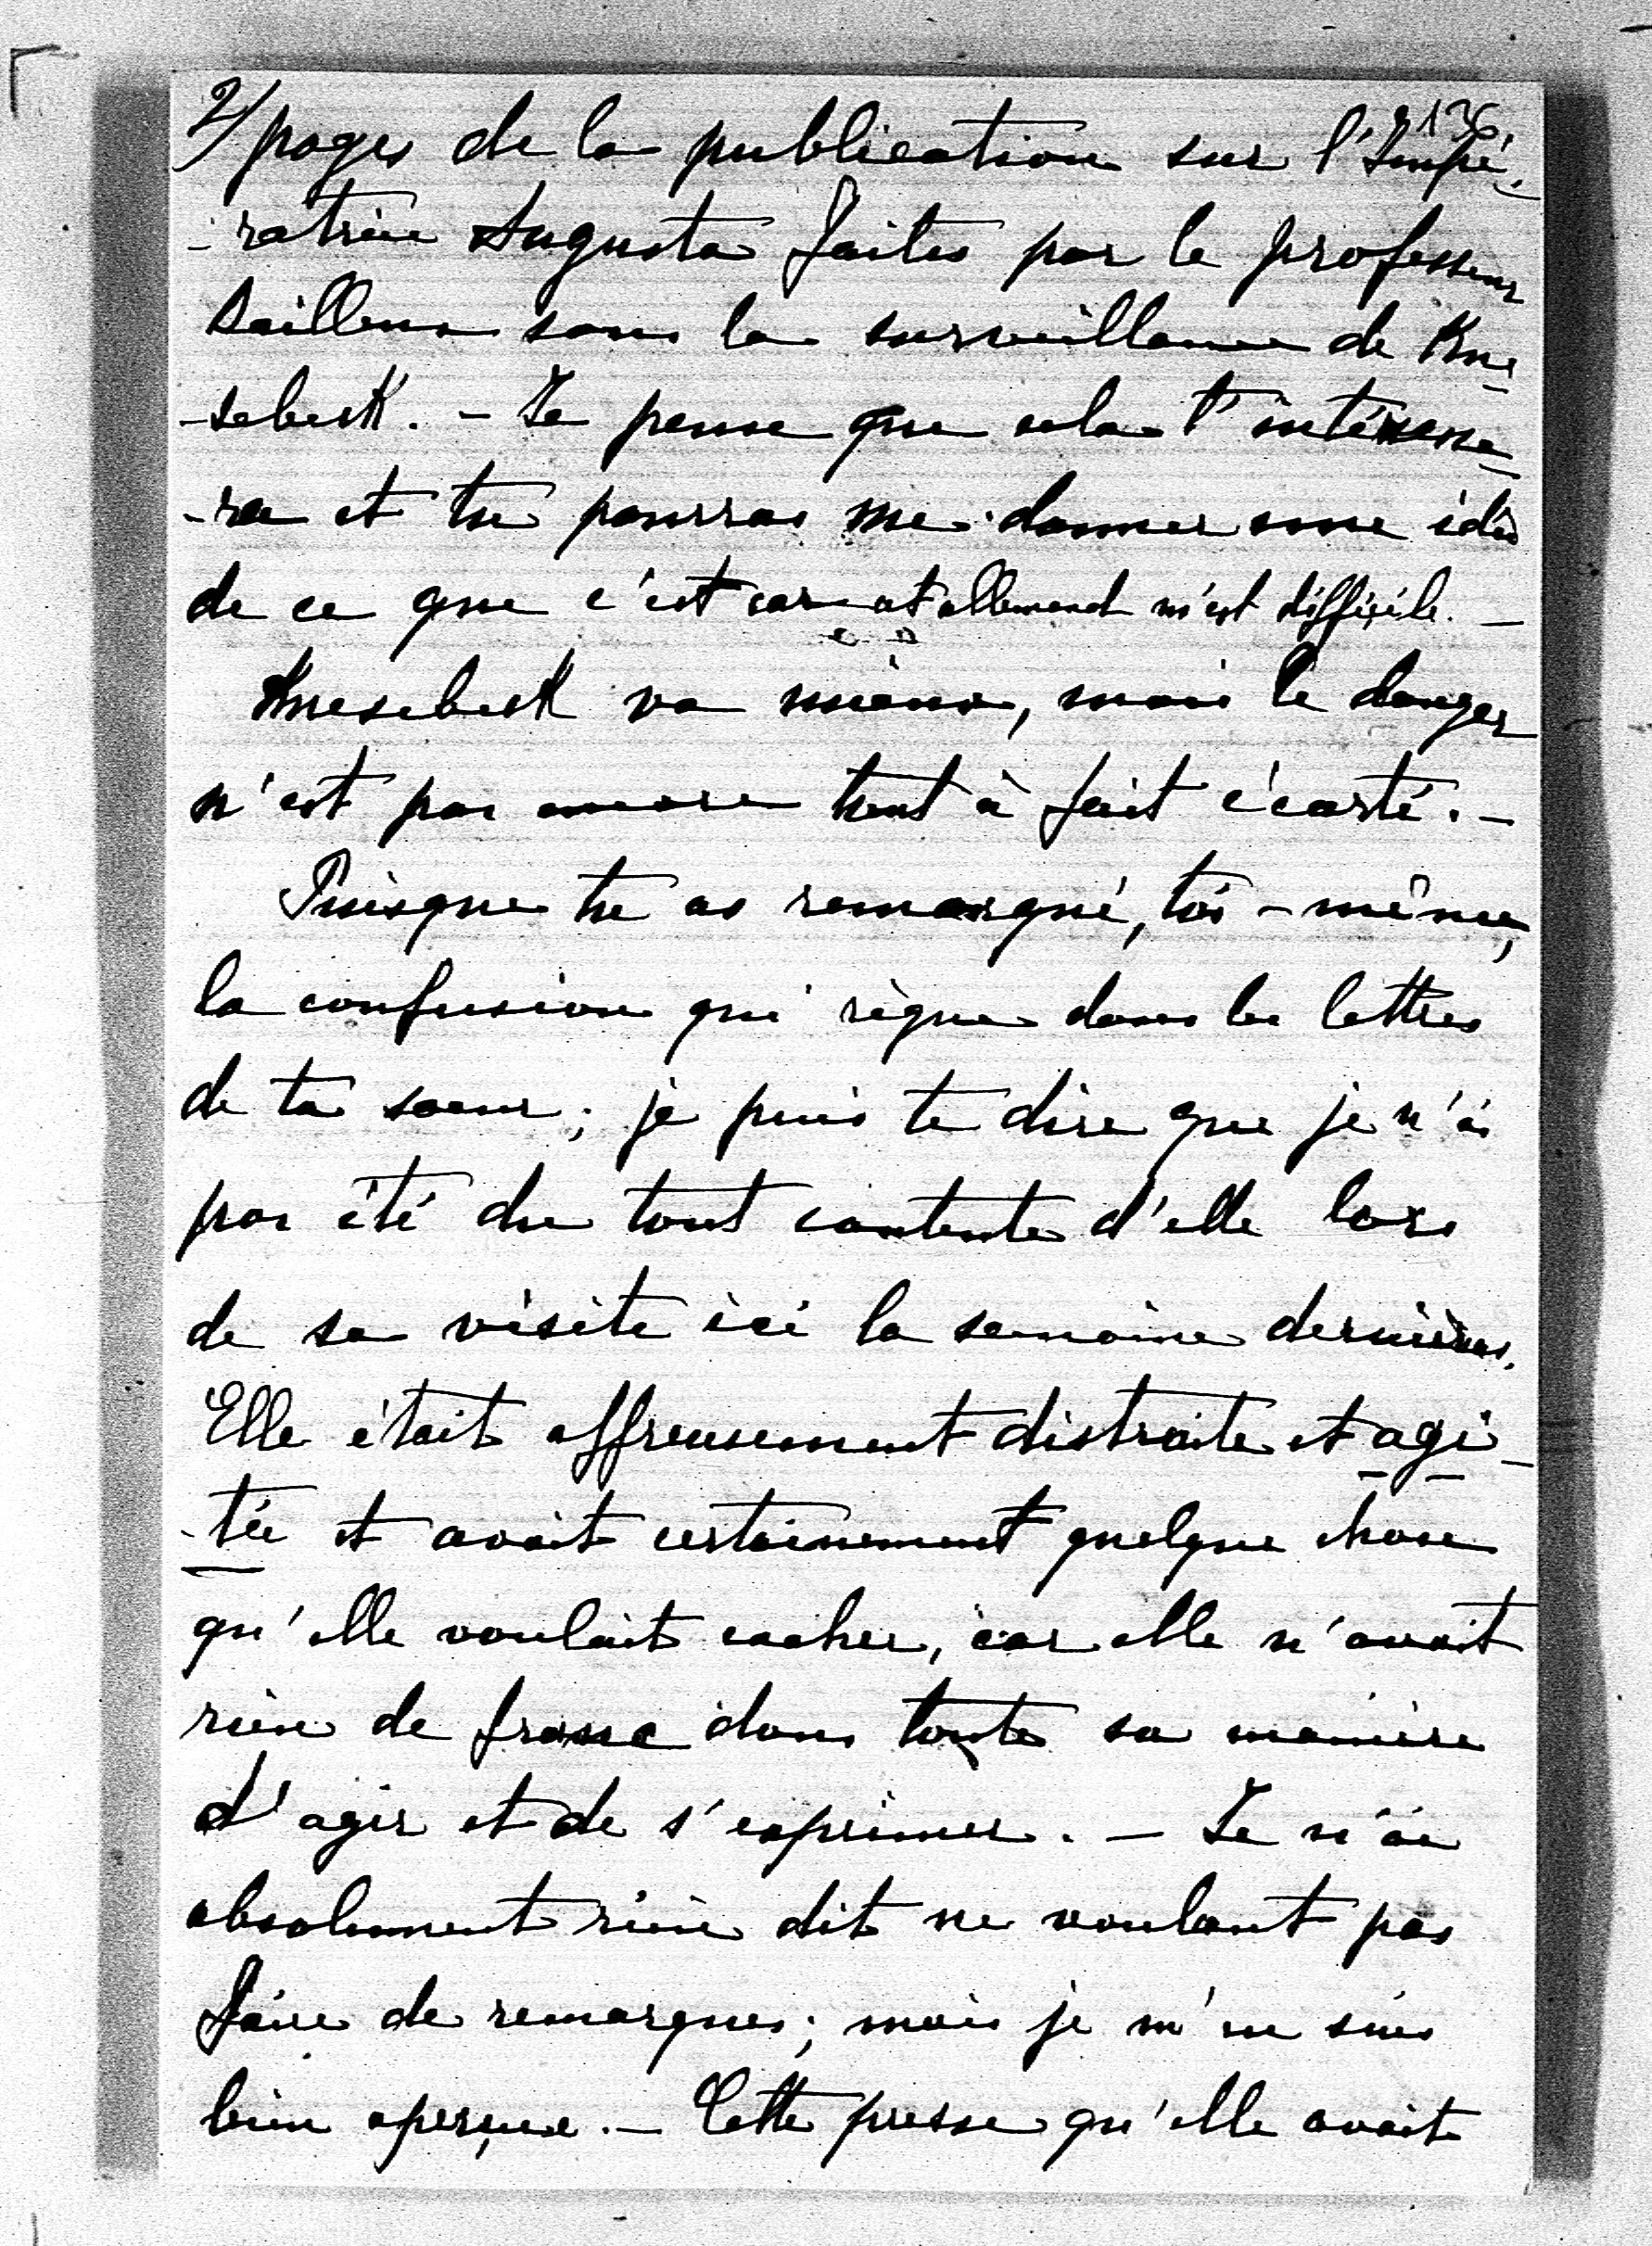 2/ pages de la publication sur l'Impé-
-ratrice Augusta faites par le professeur
Bailleu sous la surveillance de Kne
-sebeck. - Je pense que cela t'intéresse-
-ra et tu pourras me donner une idée
de ce que c'est car cet allemand m'est difficile. -
Knesebeck va mieux, mais le danger
n'est pas encore tout à fait écarté. -
Puisque tu as remarqué, toi-même,
la confusion qui règne dans les lettres
de ta soeur; je puis te dire que je n'ai
pas été du tout contente d'elle lors
de sa visite ici la semaine dernière.
Elle était affreusement distraite et agi-
-tée et avait certainement quelque chose
qu'elle voulait cacher, car elle n'avait
rien de franc dans toute sa manière
d'agir et de s'exprimer. - Je n'ai
absolument rien dit ne voulant pas
faire de remarques; mais je m'en suis
bien aperçue. - Cette presse qu'elle avait